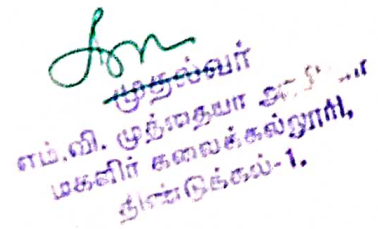 முதல்வர்
எம்.வி. முத்தையா
மகளிர் கலைக்கல்லூரி,
திண்டுக்கல்-1.